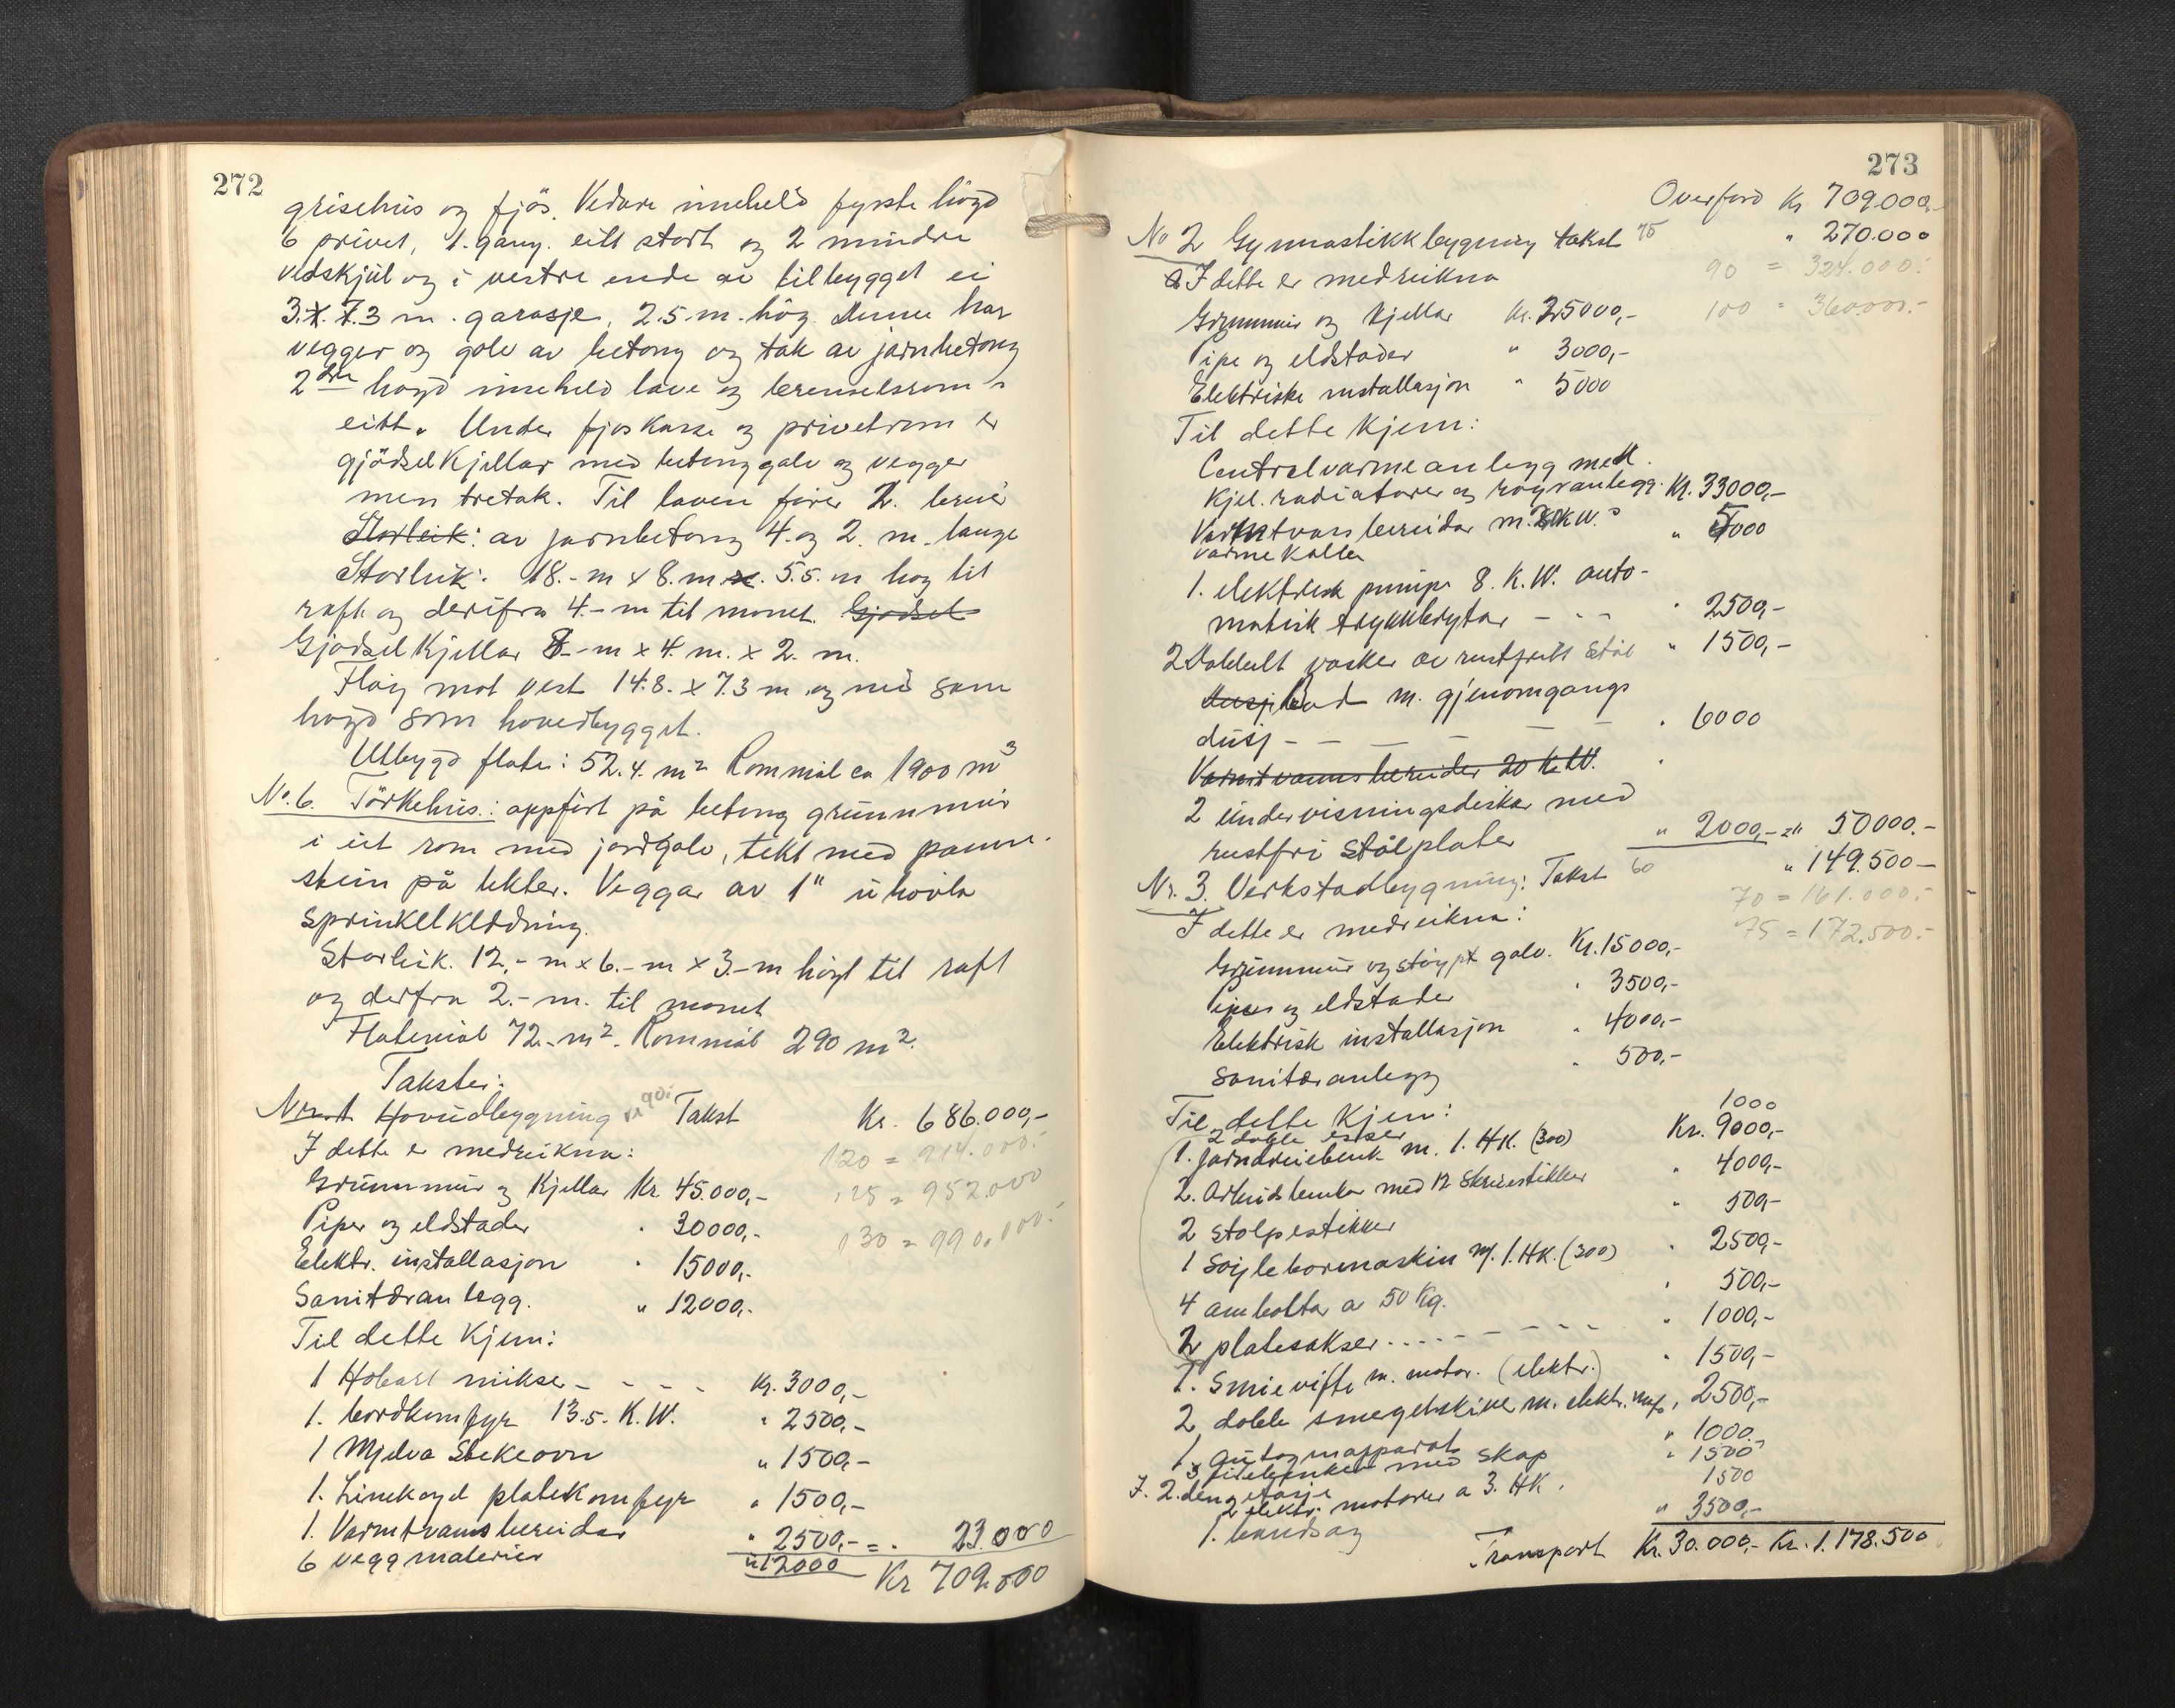 272
grisehus og fjös. Vidare inneheld fyrste högd
6 privet, 1. gang. eitt stort og 2 mindre
vedskjul og i vestre ende av tilbygget ei
3. x 7.3 m. garasje, 2.5. m. hög. Denne har
vegger og golv av betong og tak av jarnbetong
2dre högd inneheld lave og brenselsrom i
eitt. Under fjøskasse og privetrom er
gjödselkjellar med betonggolv og vegger
men tretak. Til laven fører 2. bruer
Storleik: av jarnbetong 4. og 2. m. lange
Storleik: 18.- m x 8. m x. 5.5. m høg til
raft og derifra 4.- m til mønet. Gjødsel
Gjødselkjellar 8.- m x 4. m. x 2. m.
Fløy mot vest 14.8. x 7.3 m. og med same
høgd som hovedbygget.
Utbygd flate: 52.4. m2 Rommål ca 1900 m3
No. 6. Törkehus.: oppfört på betong grunnmur
i eit rom med jordgolv, tekt med panne-
stein på lekter. Veggar av 1" uhövla
sprinkelkledning.
Storleik. 12.- m x 6.- m x 3.- m högt til raft
og derfra 2.- m. til mønet
Flatemål 72.- m2. Rommål 290 m2.
Takster:
Nr. 1 Hovudbygning 90: Takst Kr. 686.000,-
I dette er medreikna: 120 = 914.000:-
Grunnmur og Kjellar Kr 45.000,- 125 = 952.000
Piper og eldstader " 30000,- 130 = 990.000:-
Elektr. installasjon " 15000,-
Sanitæranlegg. " 12000,-
Til dette Kjem:
1 Hobart mikser - - - - Kr. 3000,-
1. bordkomfyr 13.5. K.W. " 2500,-
1 Mjelva Stekeovn " 1500,-
1. platekomfyr " 1500,-
1. Varmtvannsbereidar " 2500,- = " 23.000
6 veggmaterier " 12000 Kr 709.000
273
Overförd Kr 709.000,-
No 2 Gymnastikkbygning takst 75 " 270.000
I dette er medreikna 90 = 324.000:
Grunnmur og Kjellar Kr. 25000,- 100 = 360.000.-
Pipe og eldstader " 3000,-
Elektriske installasjon " 5000
Til dette Kjem:
Centralvarmeanlegg med
Kjel. radiatorer og røyranlegg. Kr. 33000,-
Varmtvannsbereidar m. K.W. " 5000
varmekolbe
1. elektrisk pumpe 8. K.W. auto-
matisk trykkbrytar - - - " 2500,-
2 Dobbelt vasker av rustfritt Stål " 1500,-
Dusjbad m. gjenomgangs
dusj - - - - - - " 6000
Varmtvannsbereider 20 K.W. "
2 undervisningsdiskar med
rustfri stålplater " 2000,- = " 50000.-
Nr. 3. Verkstadbygning: Takst 60 " 149.500-
I dette er medreikna: 70 = 161.000:-
Grunnmur og støypt golv. Kr. 15000,- 75 = 172.500:-
Piper og eldstader " 3500,-
Elektrisk installasjon " 4000,-
Sanitæranlegg " 500,-
Til dette Kjem:
2 doble esser 1000
1. Jarndreiebenk m. 1. HK. (300) Kr. 9000,-
2. Arbeidsbenker med 12 Skruestikker " 4000,-
2 Stolpestikker " 500,-
1 Søyleboremaskin m/. 1. HK. (300) " 2500,-
4 ambolter a 50 Kg. " 500,-
2 platesakser - - - - - - " 1000,-
1. Smievifte m. motor. (elektr.) " 1500,-
2 doble smergelskiver m. elektr. mot. " 2500,-
1. autogenapparat " 1000.
3 filebenker med skap " 1500
I. 2. den etasje
2 elektr. motorer a 3. HK. 1500
1. bandsag " 3500,-
Transport Kr. 30.000,- Kr. 1.178.500